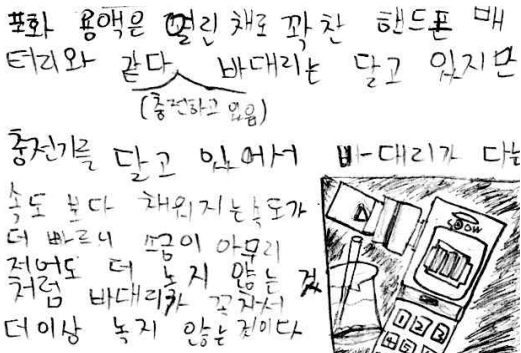 포화 용액은 열린 채로 꽉 찬 핸드폰 배
터리와 같다. 바대리는 달고 있지만
(충전하고 있음)
충전기를 달고 있어서 바대리가 다는
속도 보다 채워지는 속도가
더 빠르니 소금이 아무리
저어도 더 녹지 않는 것
처럼 바대리가 꽉차서
더이상 녹지 않는것이다
1 2 3
4 5